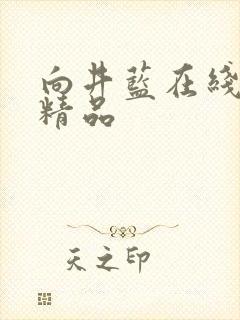 向井藍在綫
精品
天之印